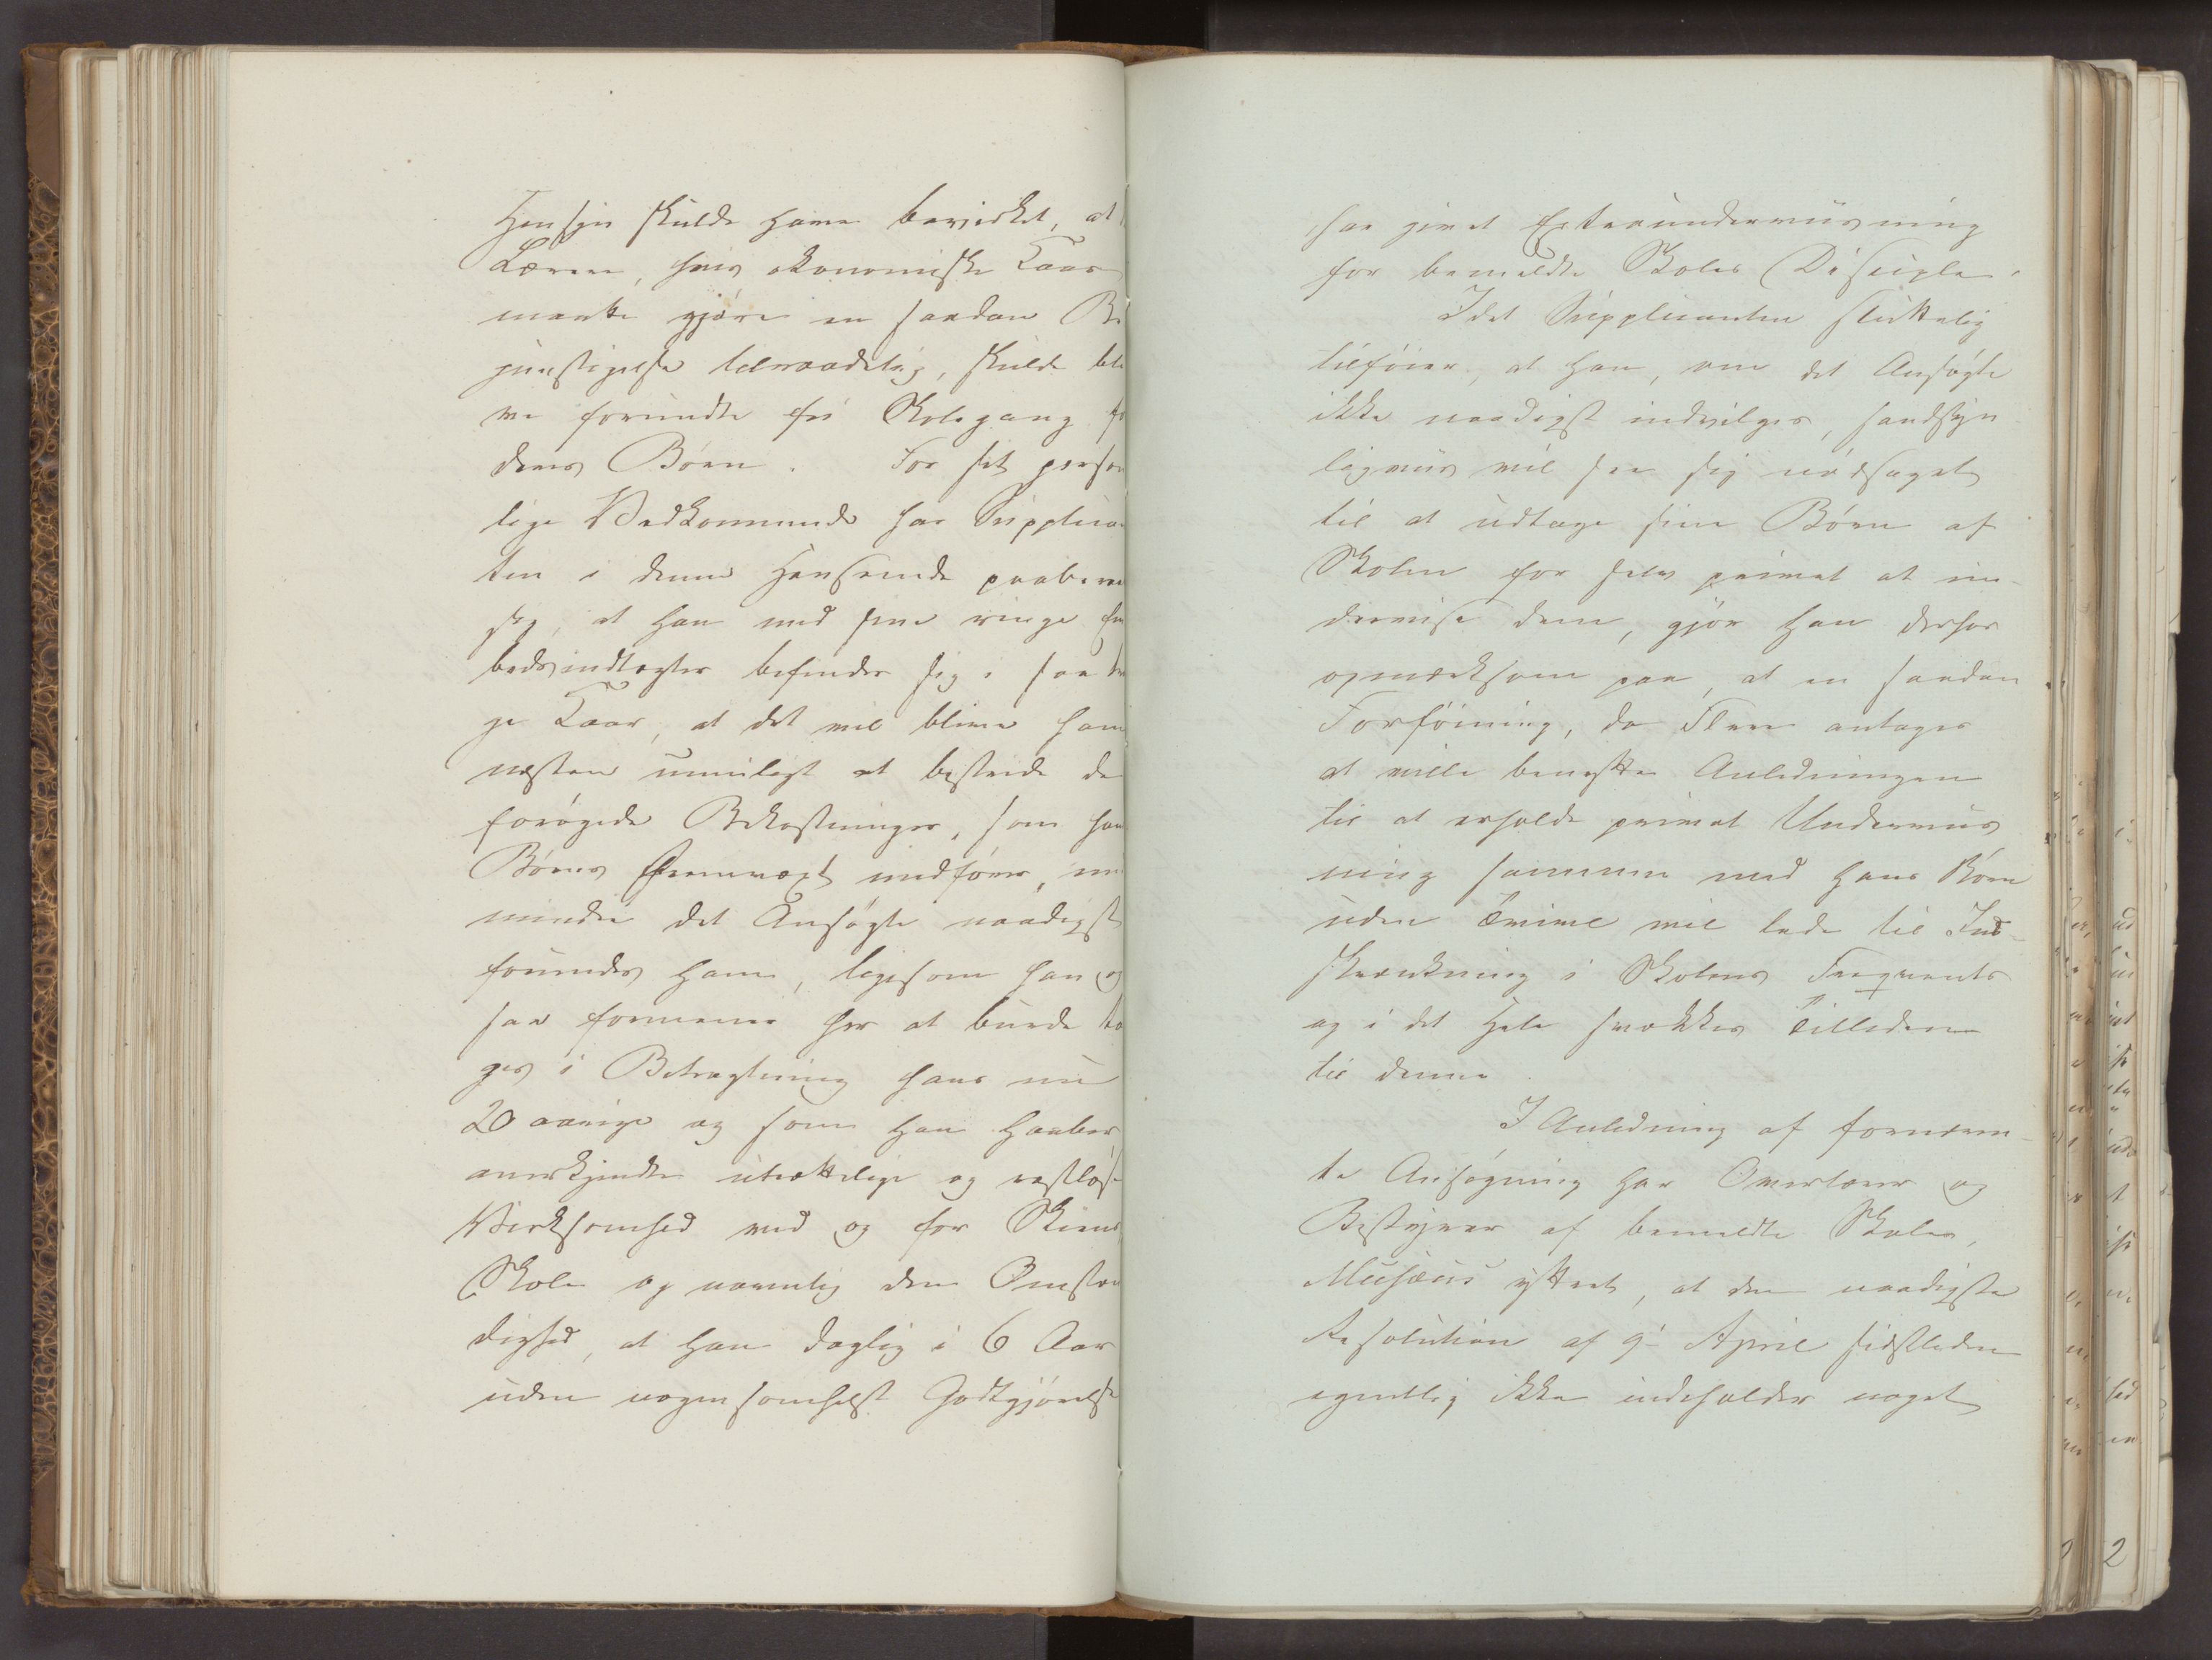 Hensyn skulde have bevirket, at
Lærere, hvis økonomiske Kaar
maatte gjøre en saadan Be
gunstigelse tilraadelig, skulde bli
ve forundte fri Skolegang fo
deres Børn. For sit person
lige Vedkommende har Supplican
ten i denne Henseende paabera
sig, at han med sine ringe Em
bedsindtægter befinder sig i saa tr
ge Kaar, at det vil blive ham
næsten umuligt at bestride de
forøgede Bekostninger, som han
Børns Fremvæxt medfører, med
mindre det Ansøgte naadigst
forundes ham, ligesom han og
saa formener her at burde ta
ges i Betragtning hans nu
20 aarige og som han haaber
anerkjendte utrættelige og restløse
Virksomhed ved og for Skiens
Skole og navnlig den Omstæn
dighed, at han daglig i 6 Aar
uden nogensomhelst Godtgjørelse
har givet Extraundervisning
for bemeldte Skoles Disciple.
Idet Supplicanten sluttelig
tilføier, at han, om det Ansøgte
ikke naadigst indvilges, sandsyn
ligviis vil see sig nødsaget
til at udtage sine Børn af
Skolen for selv privat at un-
dervise dem, gjør han derhos
opmærksom paa, at en saadan
Forføining, da Flere antages
at ville benytte Anledningen
til at erholde privat Underviis
ning sammen med hans Børn
uden Tvivl vil lede til Ind-
skrænkning i Skolens Freqvents
og i det Hele svække Tilliden
til denne.
I Anledning af fornævn-
te Ansøgning har Overlærer og
Bestyrer af bemeldte Skole,
Musæus yttret, at den naadigste
Resolution af 9de April sidstleden
egentlig ikke indeholder noget
2